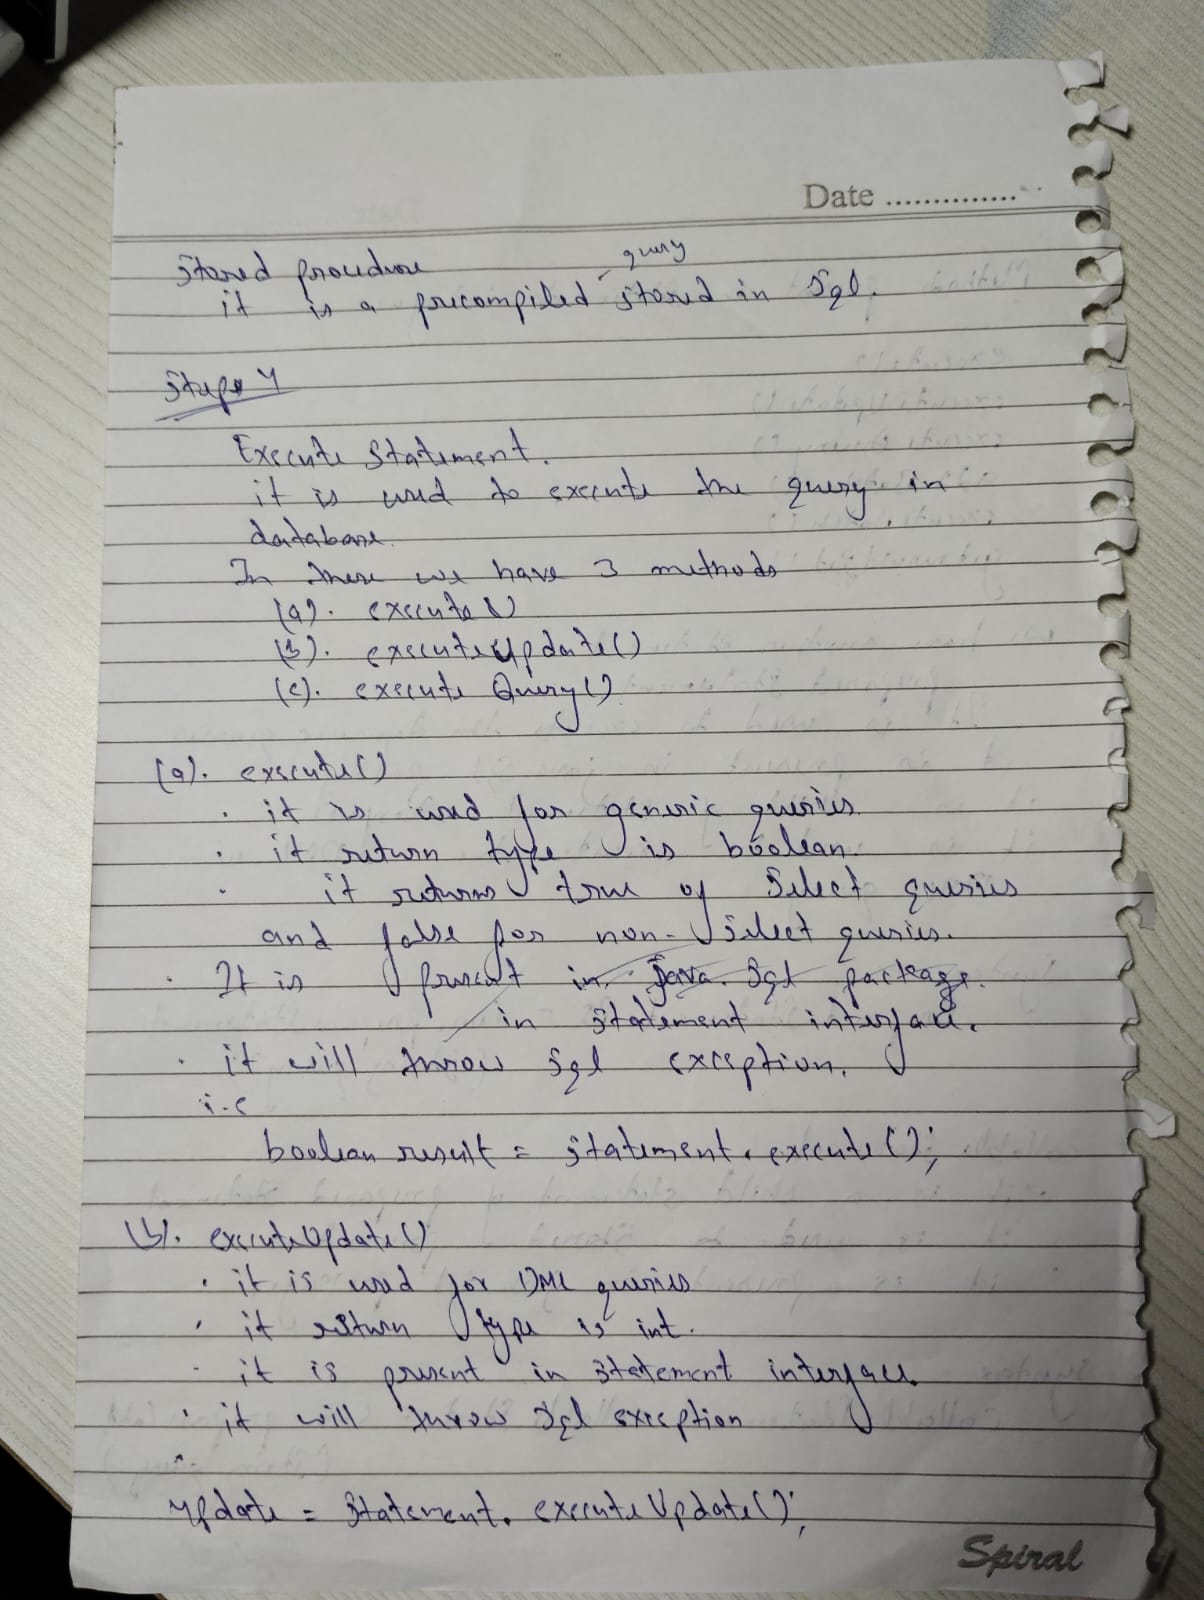 Date ..............
Stored procedure
query
it is a precompiled stored in Sql.
Steps 4
Execute Statement.
it is used to execute the query in
database.
In there we have 3 methods
(a). execute()
(b). executeUpdate()
(c). execute Query()
(a). execute()
. it is used for generic queries.
. it return type is boolean.
. it returns true of Select queries
and false for non-Select queries.
. It is present in Java. Sql package.
in statement interface.
. it will throw Sql exception.
i.e
boolean result = statement.execute();
(b). executeUpdate()
. it is used for DML queries
. it return type is int.
. it is present in Statement interface
. it will throw Sql exception
update = Statement. executeUpdate();
Spiral